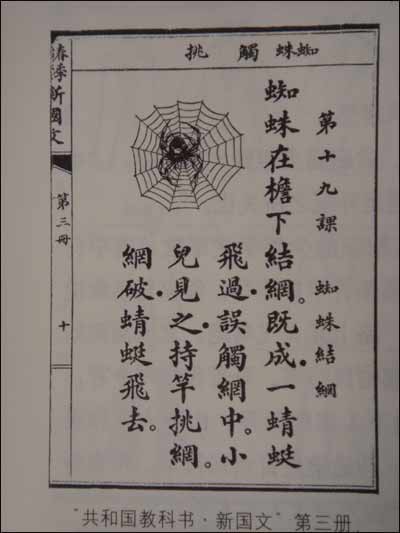 蜘蛛 觸 挑
第十九課 蜘蛛結網
蜘蛛在檐下結網。既成。一蜻蜓
飛過。誤觸網中。小
兒見之。持竿挑網。
網破。蜻蜓飛去。
春季新國文
第三冊
十
“共和国教科书·新国文”第三册